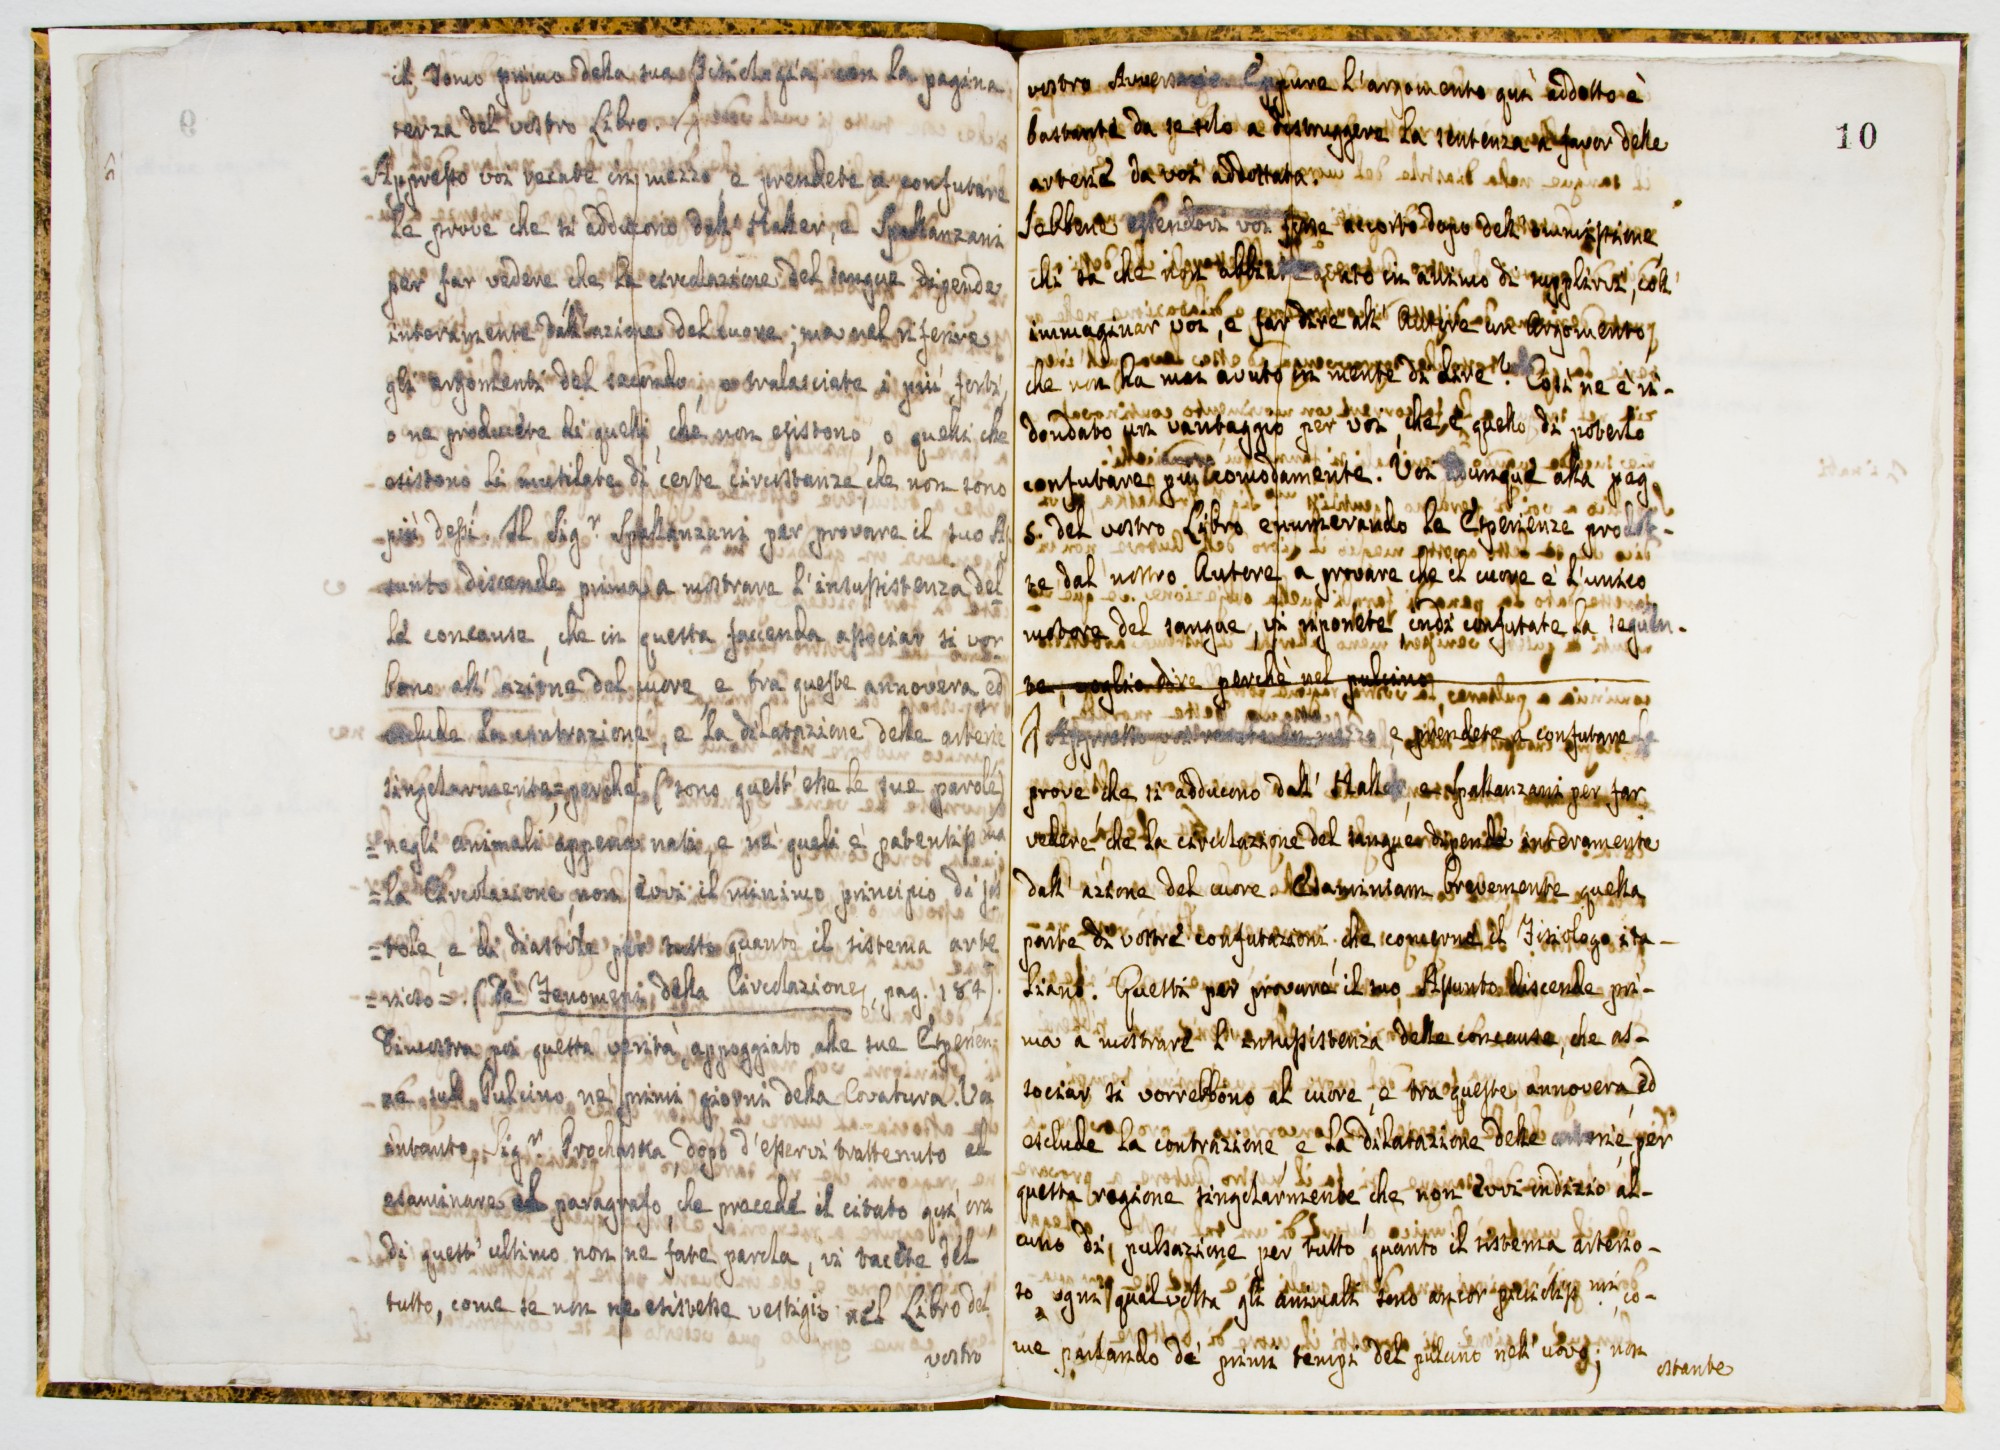 il Tomo primo della sua Fisiologia con la pagina
terza del vostro Libro.
Appresso voi recate in mezzo, e prendete a confutare
le prove che si adducono dall' Haller, e Spallanzani
per far vedere che la circolazione del sangue dipende
interamente dall'azione del cuore; ma nel riferire
gli argomenti del secondo, o tralasciate i più forti,
o ne producete di quelli, che non esistono, o quelli che
esistono li mutilate di certe circostanze, che non sono
più dessi. Il Sig.r Spallanzani per provare il suo As
sunto discende prima a mostrare l'insussistenza del
le concause, che in questa faccenda associar si vor
bono all' azione del cuore, e tra queste annovera, ed
esclude la contrazione, e la dilatazione delle arterie
singolarmente, perché (sono quest' esse le sue parole)
= negli animali appena nati, e ne' quali è patentiss.ma
= la Circolazione, non èvvi il minimo principio di sis
= tole, e di diastole per tutto quanto il sistema arte
= rioso = (De' Fenomeni della Circolazione, pag. 184).
Dimostra poi questa verità, appoggiato alle sue Esperien
ze sul Pulcino ne' primi giorni della Covatura. Voi
intanto, Sig.r Prochaska, dopo d'esservi trattenuto ad
esaminare il paragrafo, che precede il citato qui ora
di quest' ultimo non ne fate parola, vi tacete del
tutto, come se non ne esistesse vestigio nel Libro del
vostro
10
vostro Avversario. Eppure l'argomento quì addotto è
bastante da se solo a distruggere la sentenza a favor delle
arterie da voi addottata.
Sebbene essendovi voi forse accorto dopo dell' ommissione
chi sa che non abbiate avuto in animo di supplirvi, coll'
immaginar voi, e far dire all' Autore un Argomento,
che non ha mai avuto in mente di dire? Così ne è ri-
dondato un vantaggio per voi, che è quello di poterlo
confutare più comodamente. Voi adunque alla pag.
5. del vostro Libro enumerando le Esperienze prodot-
te dal nostro Autore a provare che il cuore è l'unico
motore del sangue, vi riponete, indi confutate la seguen-
te, voglio dire perchè nel pulcino
Appresso voi recate in mezzo, e prendete a confutare le
prove che si adducono dall' Haller, e Spallanzani per far
vedere che la circolazione del sangue dipende interamente
dall' azione del cuore. Esaminiam brevemente quella
parte di vostre confutazioni, che concerne il Fisiologo ita-
liano. Questi per provare il suo Assunto discende pri-
ma a mostrare l'insussistenza delle concause, che as-
sociar si vorrebbono al cuore, e tra queste annovera, ed
esclude la contrazione, e la dilatazione delle arterie, per
questa ragione singolarmente, che non èvvi indizio al-
cuno di pulsazione per tutto quanto il sistema arterio-
so ogni qual volta gli animali sono ancor picciolissmi, co-
me parlando de' primi tempi del pulcino nell' uovo; non
ostante